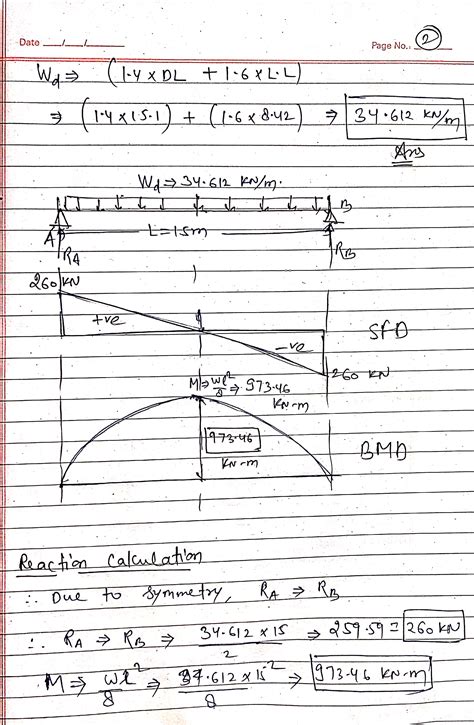 Date __/__/__
Page No.: 2
Wd ⇒ (1.4 x DL + 1.6 x L.L)
⇒ (1.4 x 15.1) + (1.6 x 8.42) ⇒ 34.612 KN/m
Ans
Wd ⇒ 34.612 KN/m.
A B
L = 15m
RA RB
260 KN
+ve
-ve SFD
260 KN
M ⇒ wl²/8 ⇒ 973.46 KN-m
973.46 KN-m
BMD
Reaction Calculation
∴ Due to symmetry, RA ⇒ RB
∴ RA ⇒ RB ⇒ 34.612 x 15 / 2 ⇒ 259.59 = 260 KN
M ⇒ wl²/8 ⇒ 34.612 x 15² / 8 ⇒ 973.46 KN-m